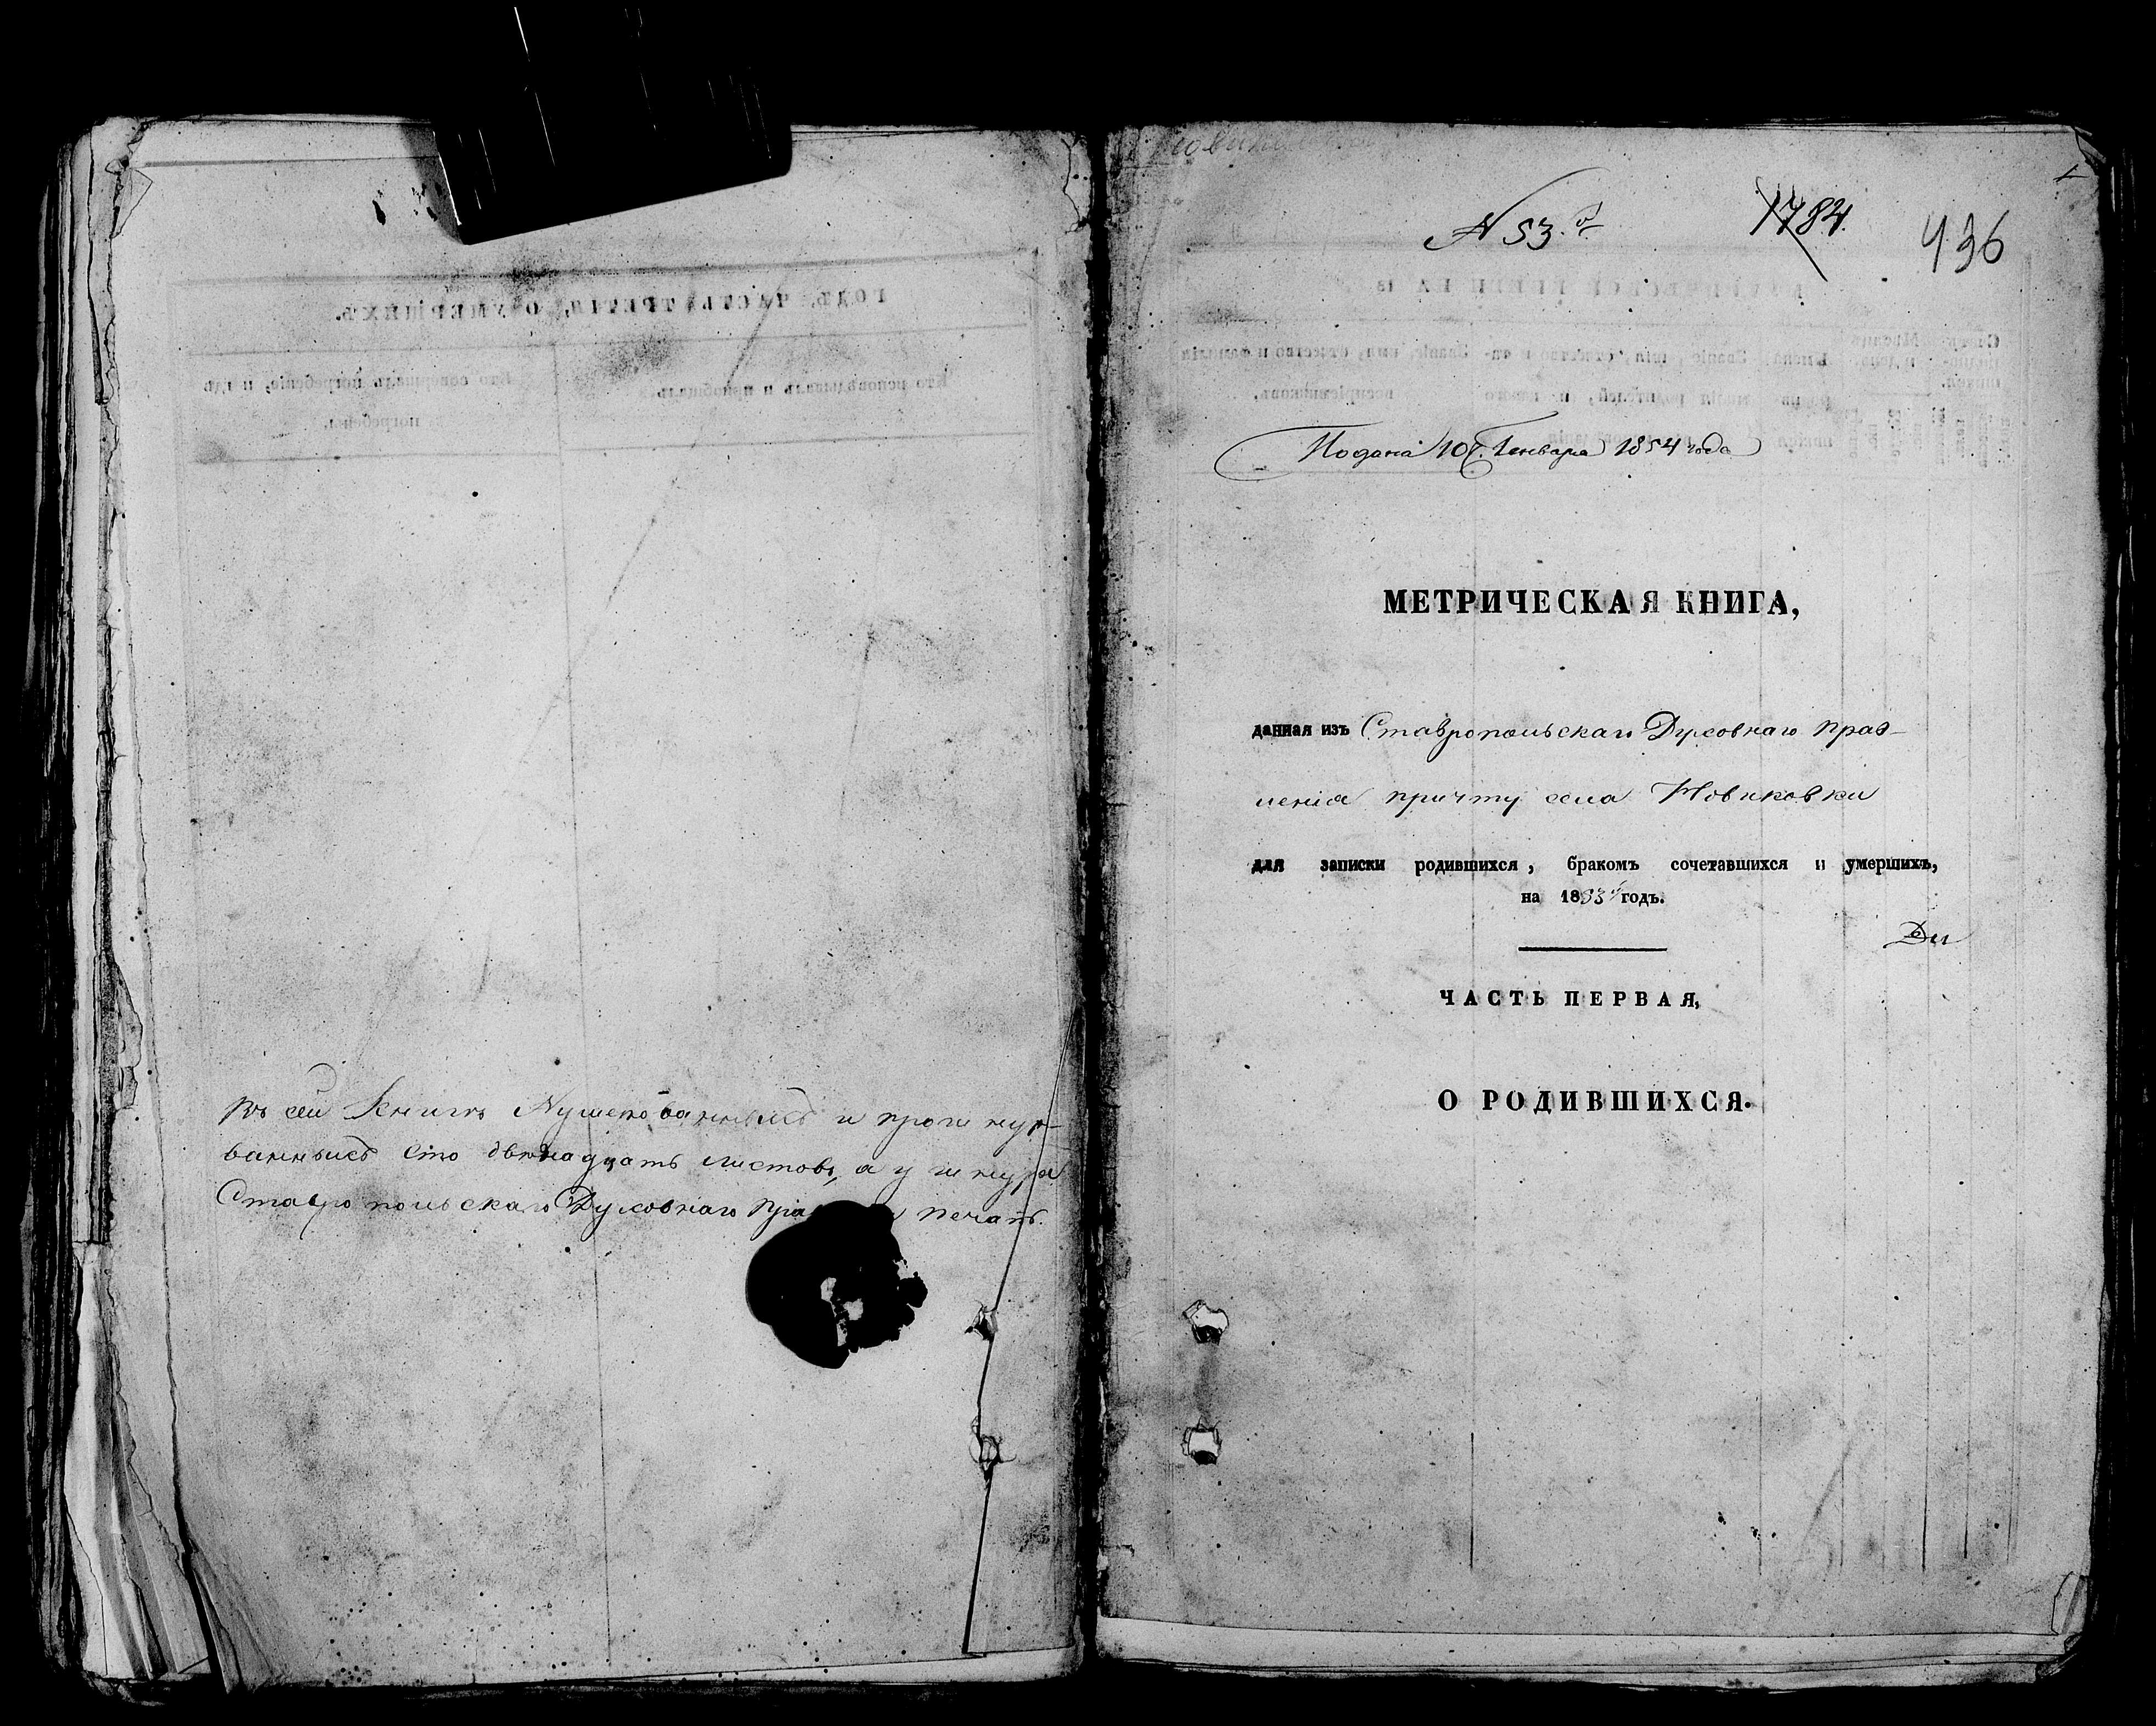 Въ сей Книгѣ Нумерованныхъ и прошнуро-
ванныхъ Сто двенадцать листовъ, а у шнура
Ставропольскаго Духовнаго печать.
N 53.й
1784.
436
Подана 10 Генваря 1854 года
МЕТРИЧЕСКАЯ КНИГА,
данная изъ Ставропольскаго Духовнаго прав-
ленія причту села Новиковки
для записки родившихся, бракомъ сочетавшихся и умершихъ,
на 1853й годъ.
ЧАСТЬ ПЕРВАЯ,
О РОДИВШИХСЯ.